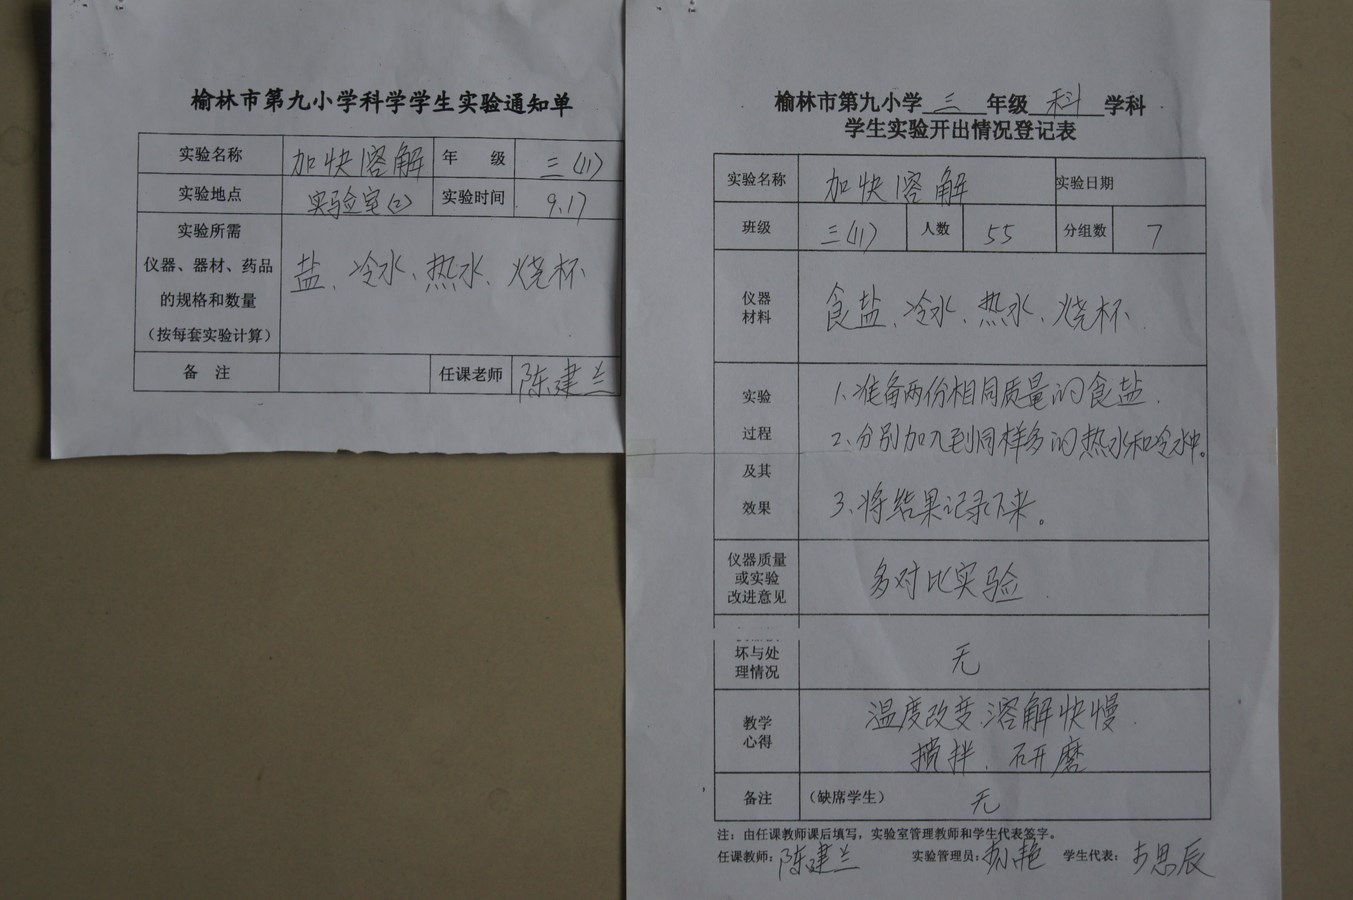 榆林市第九小学科学学生实验通知单
实验名称 加快溶解 年 级 三(11)
实验地点 实验室(2) 实验时间 9.17
实验所需
仪器、器材、药品
的规格和数量
(按每套实验计算)
盐、冷水、热水、烧杯
备 注 任课老师 陈建兰
榆林市第九小学 三 年级 科 学科
学生实验开出情况登记表
实验名称 加快溶解 实验日期
班级 三(11) 人数 55 分组数 7
仪器
材料
食盐、冷水、热水、烧杯
实验
过程
及其
效果
1、准备两份相同质量的食盐.
2、分别加入到同样多的热水和冷水中。
3、将结果记录下来。
仪器质量
或实验
改进意见
多对比实验
坏与处
理情况
无
教学
心得
温度改变、溶解快慢
搅拌、研磨
备注 (缺席学生) 无
注:由任课教师课后填写,实验室管理教师和学生代表签字。
任课教师:陈建兰 实验管理员: 学生代表: